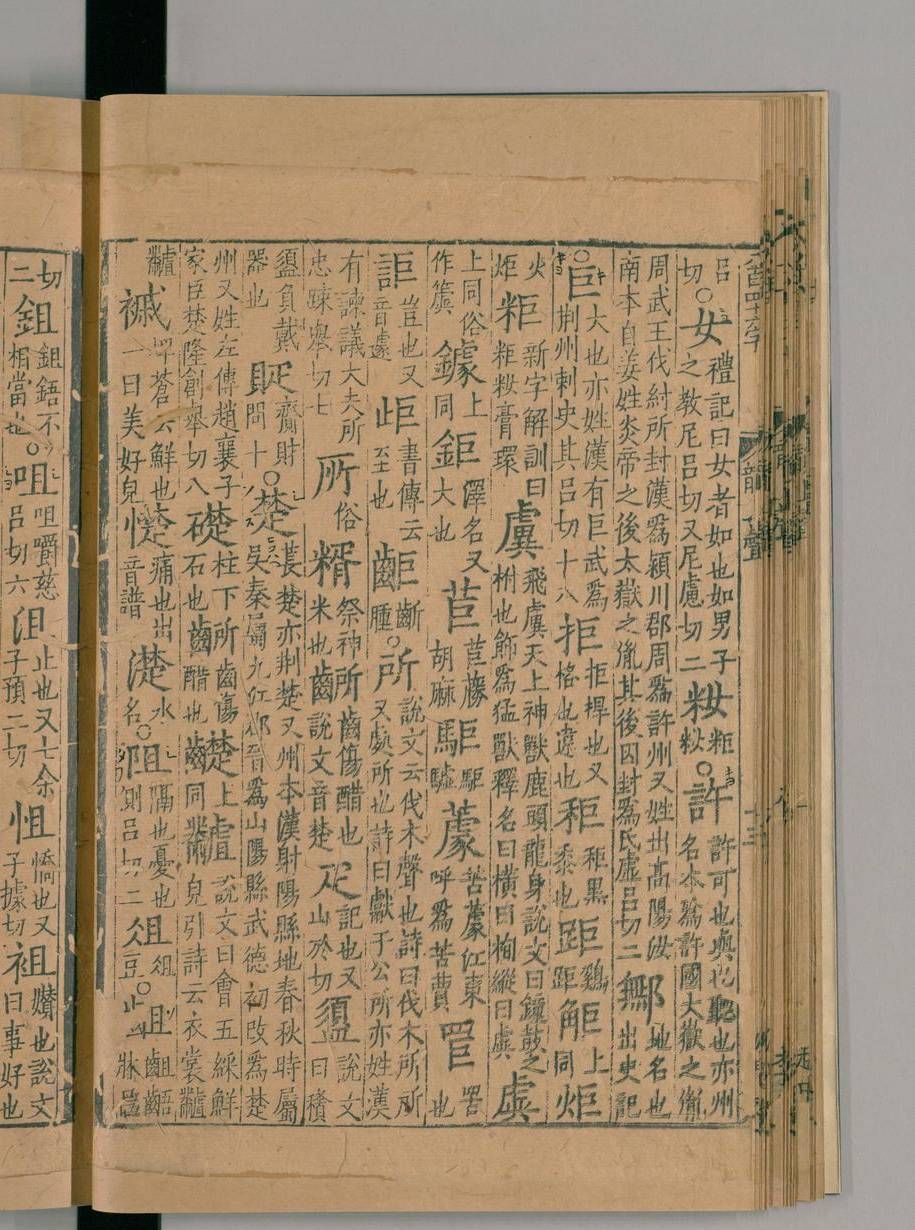 吕切○女禮記曰女者如也如男子之教尼吕切又尼慮切二籹粔籹○許許可也與也聽也亦州名本爲許國大嶽之胤
周武王伐紂所封漢爲潁川郡周爲許州又姓出高陽汝南本自姜姓炎帝之後太嶽之胤其後因封爲氏虛吕切二鄦地名也出史記
○巨大也亦姓漢有巨武爲荆州刺史其吕切十八拒拒捍也又格也違也秬秬黑黍也距鷄距䶙上同炬
火炬粔新字解訓曰粔籹膏環虡飛虡天上神獸鹿頭龍身說文曰鐘鼓之柎也飾爲猛獸釋名曰橫曰栒縱曰虡
上同俗作簴鐻上同鉅澤名又大也苣苣藤胡麻駏駏驉蘧苦蘧江東呼爲苦蕒罟也
詎豈也又音遽岠書傳云至也齗腫○所說文云伐木聲也詩曰伐木所所又處所也詩曰獻于公所亦姓漢
有諫議大夫所忠踈舉切七所俗糈祭神米也齼齒傷醋也說文音楚疋記也又山於切𥂖說文曰積
𥂖負戴器也齎財問卜○楚萇楚亦荆楚又州本漢射陽縣地春秋時屬吳秦屬九江郡晉爲山陽縣武德初改爲楚
州又姓左傳趙襄子家臣楚隆創舉切八礎柱下石也齼所齒傷醋也上同說文曰會五綵鮮皃引詩云衣裳𪓐
埤蒼云鮮也一曰美好皃憷痛也出音譜濋水名○阻隔也憂也側吕切二俎俎豆○齟齟齬
切二鉏鉏鋙不相當也○咀咀嚼慈吕切六沮止也又七余子預二切怚憍也又子據切袓𡣪也說文曰事好也